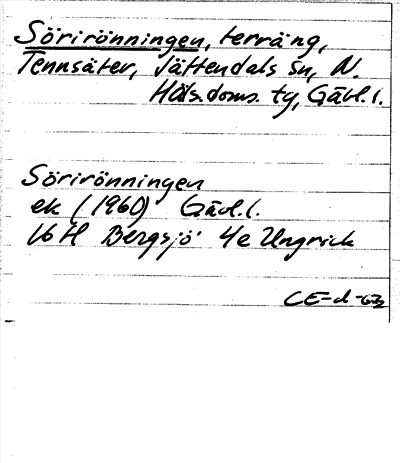 Sörirönningen, terräng,
Tennsäter, Jättendals sn, N.
Häls. doms. tg, Gävl. l.
Sörirönningen
ek (1960) Gävl. l.
16 H Bergsjö 4e Ungrick
CE-d-63